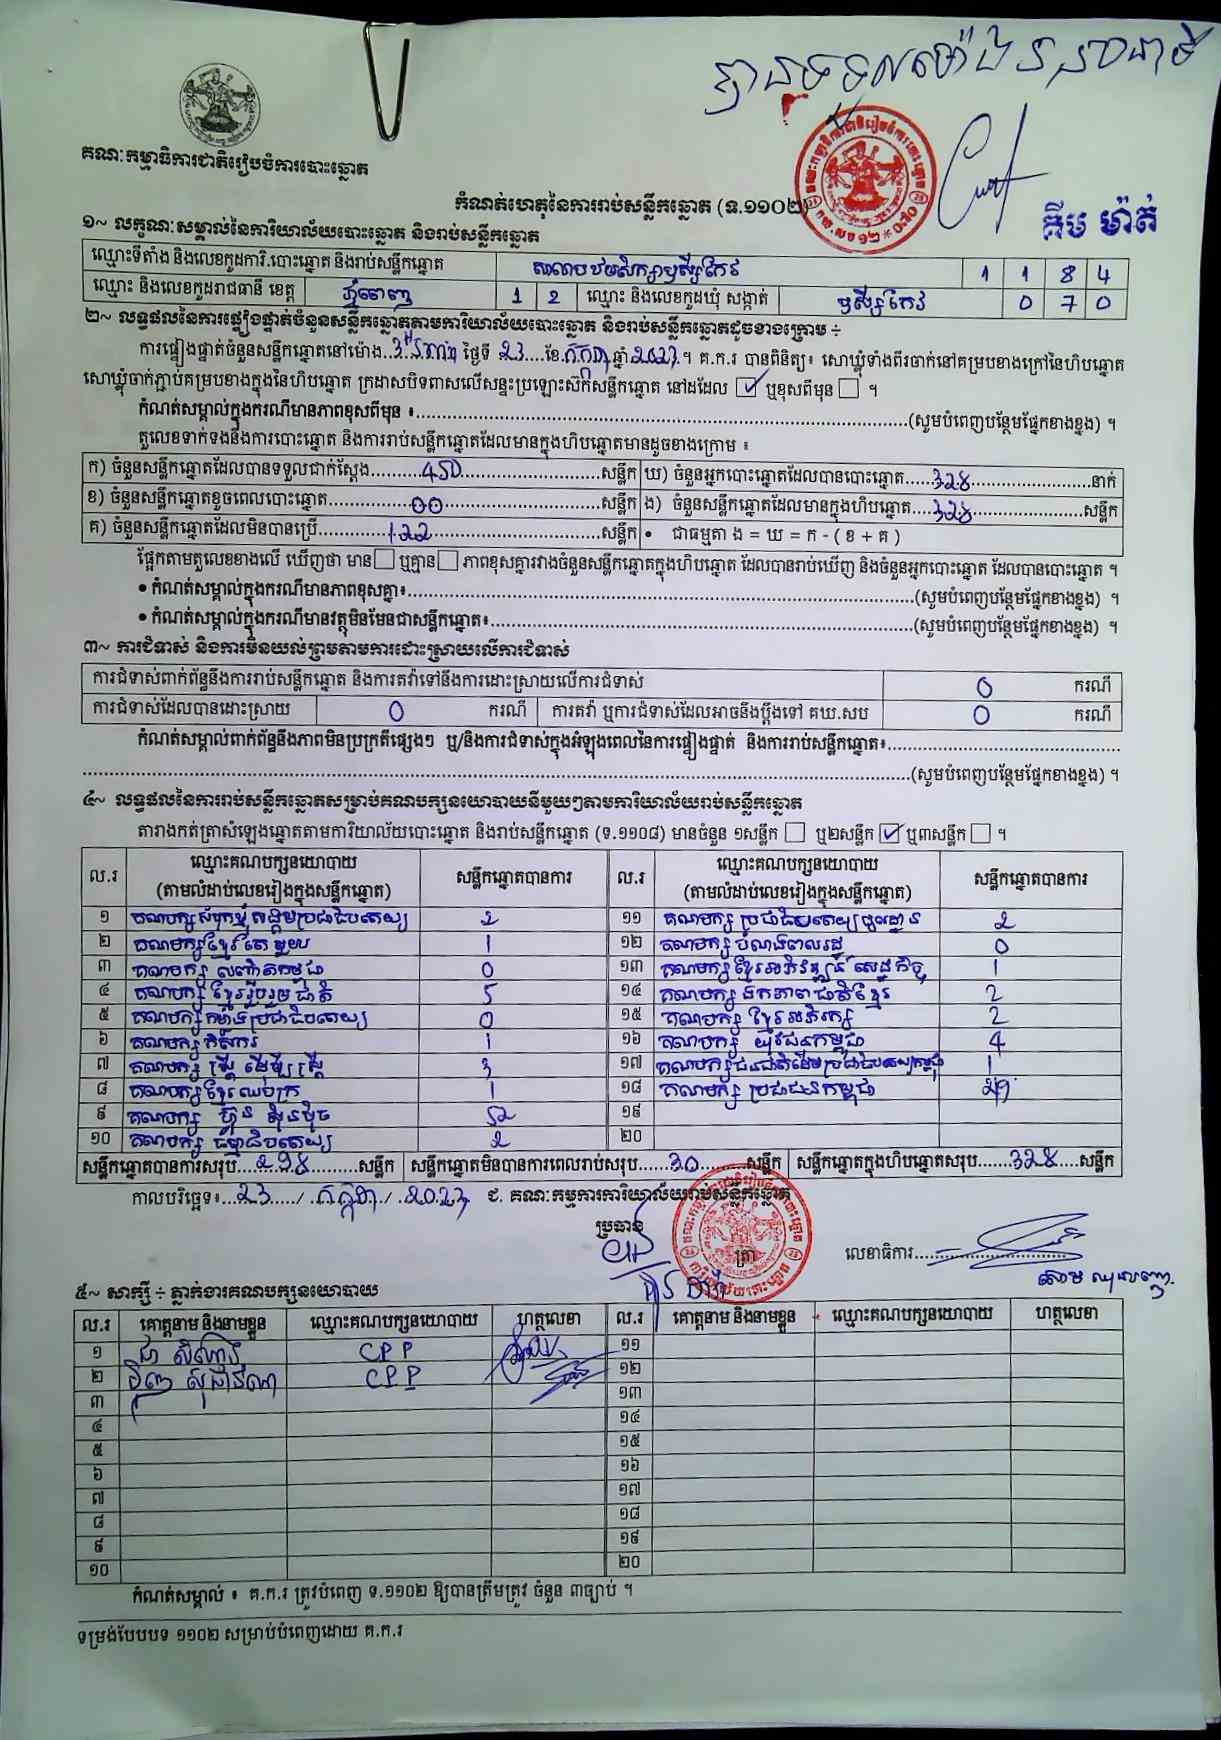 គណៈកម្មាធិការជាតិរៀបចំការបោះឆ្នោត
គីម ម៉ាត់
កំណត់ហេតុនៃការរាប់សន្លឹកឆ្នោត (ទ.១១០២)
១~ លក្ខណៈសម្គាល់នៃការិយាល័យបោះឆ្នោត និងរាប់សន្លឹកឆ្នោត
ឈ្មោះទីតាំង និងលេខកូដការិ.បោះឆ្នោត និងរាប់សន្លឹកឆ្នោត 1 1 8 4
ឈ្មោះ និងលេខកូដរាជធានី ខេត្ត ភ្នំពេញ 1 2 ឈ្មោះ និងលេខកូដឃុំ សង្កាត់ ឫស្សីកែវ 0 7 0
២~ លទ្ធផលនៃការផ្ទៀងផ្ទាត់ចំនួនសន្លឹកឆ្នោតតាមការិយាល័យបោះឆ្នោត និងរាប់សន្លឹកឆ្នោតដូចខាងក្រោម ÷
ការផ្ទៀងផ្ទាត់ចំនួនសន្លឹកឆ្នោតនៅម៉ោង ថ្ងៃទី 23 ខែ កក្កដា ឆ្នាំ 2023 ។ គ.ក.រ បានពិនិត្យ៖ សោឃ្លុំទាំងពីរចាក់នៅគម្របខាងក្រៅនៃហិបឆ្នោត
សោឃ្លុំចាក់ភ្ជាប់គម្របខាងក្នុងនៃហិបឆ្នោត ក្រដាសបិទពាសលើសន្ទះប្រឡោះស៊កសន្លឹកឆ្នោត នៅដដែល ☑ ឬខុសពីមុន ☐ ។
កំណត់សម្គាល់ក្នុងករណីមានភាពខុសពីមុន ៖ (សូមបំពេញបន្ថែមផ្នែកខាងខ្នង) ។
តួលេខទាក់ទងនឹងការបោះឆ្នោត និងការរាប់សន្លឹកឆ្នោតដែលមានក្នុងហិបឆ្នោតមានដូចខាងក្រោម ៖
ក) ចំនួនសន្លឹកឆ្នោតដែលបានទទួលជាក់ស្តែង 450 សន្លឹក ឃ) ចំនួនអ្នកបោះឆ្នោតដែលបានបោះឆ្នោត 328 នាក់
ខ) ចំនួនសន្លឹកឆ្នោតខូចពេលបោះឆ្នោត 00 សន្លឹក ង) ចំនួនសន្លឹកឆ្នោតដែលមានក្នុងហិបឆ្នោត 328 សន្លឹក
គ) ចំនួនសន្លឹកឆ្នោតដែលមិនបានប្រើ 122 សន្លឹក • ជាធម្មតា ង = ឃ = ក - ( ខ + គ )
ផ្អែកតាមតួលេខខាងលើ ឃើញថា មាន ☐ ឬគ្មាន ☐ ភាពខុសគ្នារវាងចំនួនសន្លឹកឆ្នោតក្នុងហិបឆ្នោត ដែលបានរាប់ឃើញ និងចំនួនអ្នកបោះឆ្នោត ដែលបានបោះឆ្នោត ។
• កំណត់សម្គាល់ក្នុងករណីមានភាពខុសគ្នា៖ (សូមបំពេញបន្ថែមផ្នែកខាងខ្នង) ។
• កំណត់សម្គាល់ក្នុងករណីមានវត្ថុមិនមែនជាសន្លឹកឆ្នោត៖ (សូមបំពេញបន្ថែមផ្នែកខាងខ្នង) ។
៣~ ការជំទាស់ និងការមិនយល់ព្រមតាមការដោះស្រាយលើការជំទាស់
ការជំទាស់ពាក់ព័ន្ធនឹងការរាប់សន្លឹកឆ្នោត និងការតវ៉ាទៅនឹងការដោះស្រាយលើការជំទាស់ 0 ករណី
ការជំទាស់ដែលបានដោះស្រាយ 0 ករណី ការតវ៉ា ឬការជំទាស់ដែលអាចនឹងប្តឹងទៅ គឃ.សប 0 ករណី
កំណត់សម្គាល់ពាក់ព័ន្ធនឹងភាពមិនប្រក្រតីផ្សេងៗ ឬ/និងការជំទាស់ក្នុងអំឡុងពេលនៃការផ្ទៀងផ្ទាត់ និងការរាប់សន្លឹកឆ្នោត៖
(សូមបំពេញបន្ថែមផ្នែកខាងខ្នង) ។
៤~ លទ្ធផលនៃការរាប់សន្លឹកឆ្នោតសម្រាប់គណបក្សនយោបាយនីមួយៗតាមការិយាល័យរាប់សន្លឹកឆ្នោត
តារាងកត់ត្រាសំឡេងឆ្នោតតាមការិយាល័យបោះឆ្នោត និងរាប់សន្លឹកឆ្នោត (ទ.១១០៨) មានចំនួន ១សន្លឹក ☐ ឬ២សន្លឹក ☑ ឬ៣សន្លឹក ☐ ។
ល.រ ឈ្មោះគណបក្សនយោបាយ (តាមលំដាប់លេខរៀងក្នុងសន្លឹកឆ្នោត) សន្លឹកឆ្នោតបានការ ល.រ ឈ្មោះគណបក្សនយោបាយ (តាមលំដាប់លេខរៀងក្នុងសន្លឹកឆ្នោត) សន្លឹកឆ្នោតបានការ
១ គណបក្ស សំបុកឃ្មុំសង្គមប្រជាធិបតេយ្យ 2 ១១ គណបក្ស ប្រជាធិបតេយ្យមូលដ្ឋាន 2
២ គណបក្សខ្មែរតែមួយ 1 ១២ គណបក្ស បំណងពលរដ្ឋ 0
៣ គណបក្ស កម្ពុជា 0 ១៣ គណបក្សខ្មែរអភិវឌ្ឍន៍សេដ្ឋកិច្ច 1
៤ គណបក្ស ខ្មែររួបរួមជាតិ 5 ១៤ គណបក្ស ឯកភាពជាតិខ្មែរ 2
៥ គណបក្ស កម្លាំងប្រជាធិបតេយ្យ 0 ១៥ គណបក្ស ខ្មែរអភិរក្ស 2
៦ គណបក្ស កសិករ 1 ១៦ គណបក្ស យុវជនកម្ពុជា 4
៧ គណបក្ស ស្ត្រីដើម្បីស្ត្រី 3 ១៧ គណបក្សជនជាតិដើមប្រជាធិបតេយ្យកម្ពុជា 1
៨ គណបក្សខ្មែរឈប់ក្រ 1 ១៨ គណបក្ស ប្រជាជនកម្ពុជា
៩ គណបក្ស ហ៊្វុនស៊ិនប៉ិច 52 ១៩
១០ គណបក្ស ធម្មាធិបតេយ្យ 2 ២០
សន្លឹកឆ្នោតបានការសរុប 298 សន្លឹក សន្លឹកឆ្នោតមិនបានការពេលរាប់សរុប 30 សន្លឹក សន្លឹកឆ្នោតក្នុងហិបឆ្នោតសរុប 328 សន្លឹក
កាលបរិច្ឆេទ៖ 23 / កក្កដា / 2023 ជ. គណៈកម្មការការិយាល័យរាប់សន្លឹកឆ្នោត
ប្រធាន
ត្រា
លេខាធិការ
៥~ សាក្សី ÷ ភ្នាក់ងារគណបក្សនយោបាយ
ល.រ គោត្តនាម និងនាមខ្លួន ឈ្មោះគណបក្សនយោបាយ ហត្ថលេខា ល.រ គោត្តនាម និងនាមខ្លួន ឈ្មោះគណបក្សនយោបាយ ហត្ថលេខា
១ CPP ១១
២ CPP ១២
៣ ១៣
៤ ១៤
៥ ១៥
៦ ១៦
៧ ១៧
៨ ១៨
៩ ១៩
១០ ២០
កំណត់សម្គាល់ ៖ គ.ក.រ ត្រូវបំពេញ ទ.១១០២ ឱ្យបានត្រឹមត្រូវ ចំនួន ៣ច្បាប់ ។
ទម្រង់បែបបទ ១១០២ សម្រាប់បំពេញដោយ គ.ក.រ